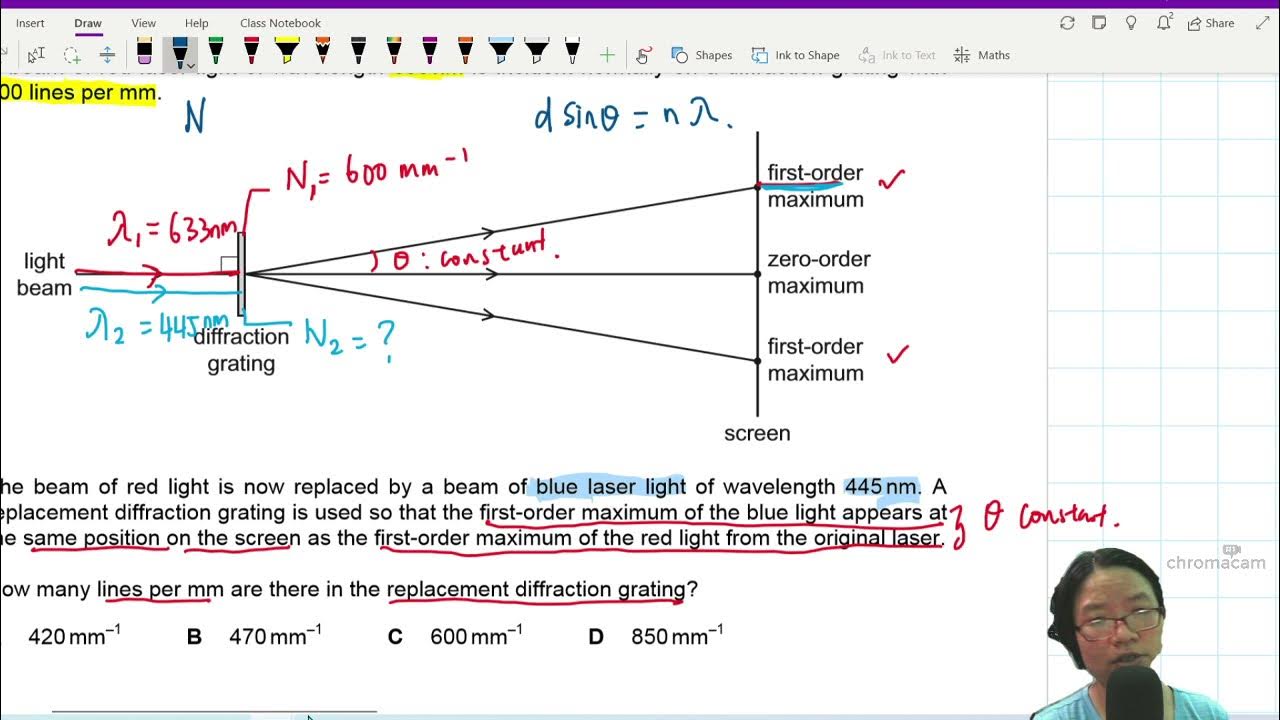 Insert Draw View Help Class Notebook Share
Shapes Ink to Shape Ink to Text Maths
00 lines per mm.
N
d sinθ = nλ.
N₁ = 600 mm⁻¹
λ₁ = 633nm
first-order
maximum
light
beam
θ : constant.
zero-order
maximum
λ₂ = 445nm
N₂ = ?
diffraction
grating
first-order
maximum
screen
he beam of red light is now replaced by a beam of blue laser light of wavelength 445 nm. A
eplacement diffraction grating is used so that the first-order maximum of the blue light appears at
e same position on the screen as the first-order maximum of the red light from the original laser.
θ constant.
ow many lines per mm are there in the replacement diffraction grating?
420 mm⁻¹ B 470 mm⁻¹ C 600 mm⁻¹ D 850 mm⁻¹
chromacam